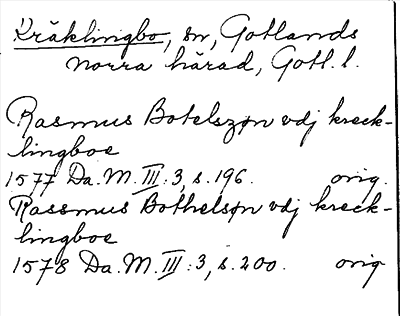 Kräklingbo, sn, Gotlands
norra härad, Gotl. l.
Rasmus Botelszøn vdj kreck-
lingboe
1577 Da. M. III: 3, s. 196. orig.
Rassmus Bothelsøn vdj kreck-
lingboe
1578 Da. M. III: 3, s. 200. orig